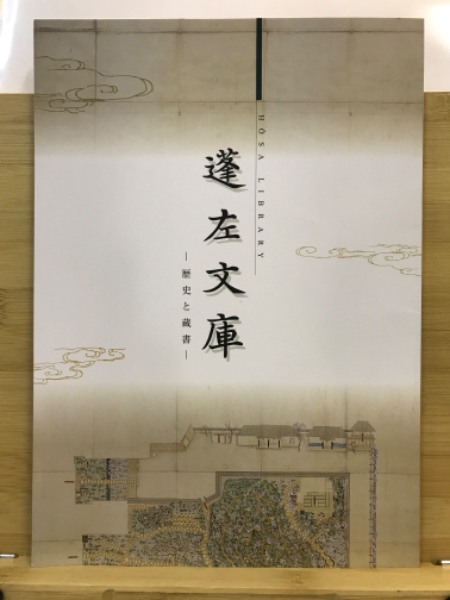 HŌSA LIBRARY
蓬左文庫
―歴史と蔵書―